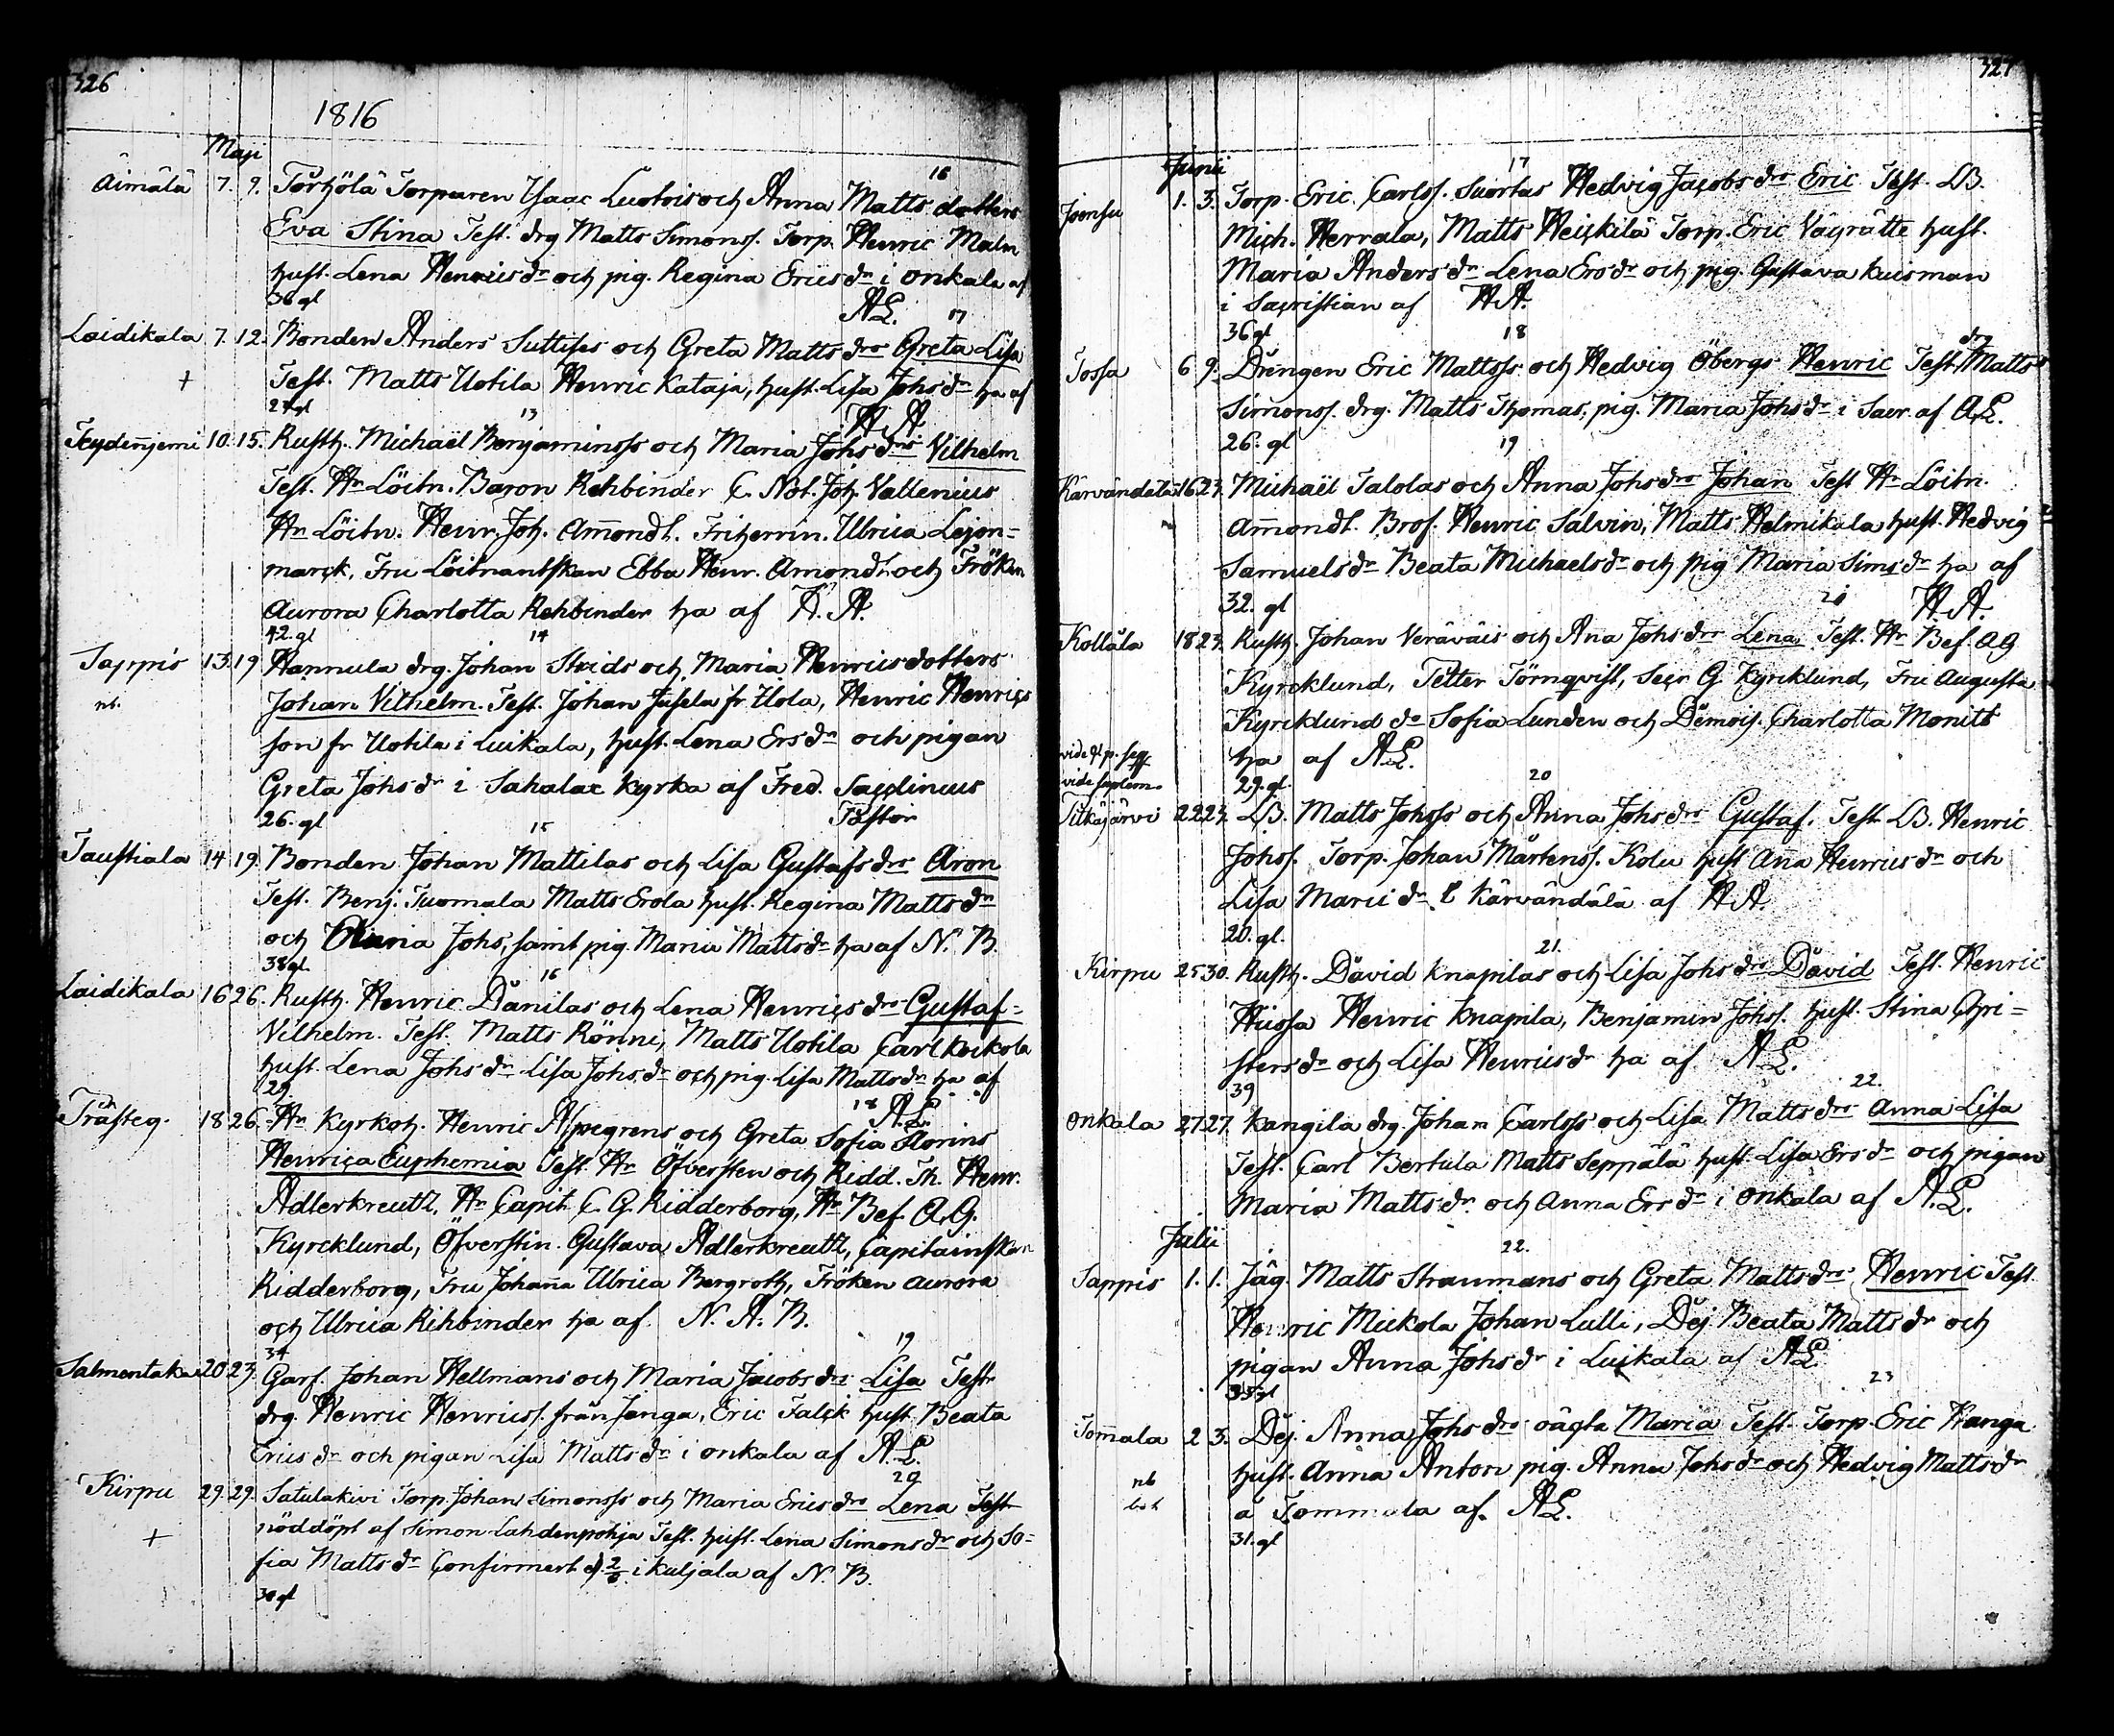 326
1816
Maji
16
Äimälä 7. 9. Torpparen Isaac Luotois och Anna Matts dotters
Eva Stina Test. drg Matts Simons. Torp. Henric Malm
hust. Lena Henricsdr och pig. Regina Ericsdr i Onkala af
36 gl AL. 17
Laidikala 7. 12. Bonden Anders Suttises och Greta Mattsdrs Greta Lisa
+ Test. Matts Uotila Henric Kataja, hust. Lisa Johsdr ha af
27 gl 13 H A
10. 15. Rusth. Michaël Benjaminss och Maria Johsdrs Vilhelm
Test. Hr Löitn. Baron Rehbinder C. Not. Joh. Vallenius
Hr Löitn. Henr. Joh. Amondt. Friherrin. Ulrica Lejon=
marck, Fru Löitnantskan Ebba Henr. Amondt och Fröken
Aurora Charlotta Rehbinder ha af H. A.
42. gl 14
Sappis 13. 19 Hannula drg. Johan Strids och Maria Henricsdotters
nb. Johan Vilhelm. Test. Johan Jusela fr Uola, Henric Henrics
son fr Uotila i Luikala, hust. Lena Ersdr och pigan
Greta Johsdr i Sahalax kyrka af Fred. Sacklinius
26. gl 15 Pastor
Taustiala 14. 19. Bonden Johan Mattilas och Lisa Gustafsdrs Aron
Test. Benj. Tuomala Matts Erola hust. Regina Mattsdr
och Maria Johs, samt pig. Maria Mattsdr ha af N. B.
38 gl. 16
Laidikala 16 26. Rusth. Henric Danilas och Lena Henricsdrs Gustaf=
Vilhelm. Test. Matts Rönni, Matts Uotila Carl Kockola
hust. Lena Johsdr Lisa Johsdr och pig. Lisa Mattsdr ha af
29. 18 A.L.
Trästeg. 18 26. Hr Kyrkoh. Henric Alpegrens och Greta Sofia Florins
Henrica Euphemia Test. Hr Öfversten och Ridd. Th. Henr.
Adlerkreutz, Hr Capit. C. G. Ridderborg, Hr Bef. A. G.
Kyrcklund, Öfverstin. Gustava Adlerkreutz, Capitainskan
Ridderborg, Fru Johana Ulrica Bergroth, Fröken Aurora
och Ulrica Rehbinder ha af N. A. B.
34 19
Salmentaka 20 23. Garf. Johan Hellmans och Maria Jacobsdrs Lisa Test
drg. Henric Henricss. från Jenga, Eric Falck hust. Beata
Ericsdr och pigan Lisa Mattsdr i Onkala af A.L.
20
Kirpu 29. 29. Satulakivi Torp. Johan Simonss och Maria Ericsdrs Lena Test
+ nöddöpt af Simon Lahdenpohja Test. hust. Lena Simonsdr och So=
fia Mattsdr Confirmert d. 2/6 i Kuljala af N. B.
30 gl
327
Junii
17
Joensu 1. 3. Torp. Eric Carlss. Suortas Hedvig Jacobsdrs Eric Test. LB.
Mich. Herrala, Matts Heickilä Torp. Eric Väyrätte hust.
Maria Andersdr Lena Ersdr och pig. Gustava Kuisman
i Sacristian af H A.
36 gl 18
Jossa 6 9. Drengen Eric Mattss och Hedvig Öbergs Henric Test. drg Matts
Simonss. drg. Matts Thomas, pig. Maria Johsdr i Sacr. af A L.
26. gl 19
Kärvändälä 16 23. Michaël Talolas och Anna Johsdrs Johan Test Hr Löitn.
Amondt. Brof. Henric Salvin, Matts Helmikala hust. Hedvig
Samuelsdr Beata Michaelsdr och pig Maria Simsdr ha af
32. gl 20 H A.
Kollala 18 23. Rusth. Johan Veräväis och Ana Johsdrs Lena Test. Hr Bef. A G
Kyrcklund, Petter Törnqvist, Secr. G. Kyrcklund, Fru Augusta
Kyrcklund dr Sofia Lunden och Demois. Charlotta Monitt
ha af A L.
29. gl. 20
Pitkäjärvi 22 23. LB. Matts Johss och Anna Johsdrs Gustaf. Test LB. Henric
Johss. Torp. Johan Mårtenss. Kolu hust Ana Henricsdr och
Lisa Maricidr i Kärvändälä af H A.
20. gl. 21.
Kirpu 25 30. Rusth. David Knapilas och Lisa Johsdrs David Test. Henric
Hiissa Henric Knapila, Benjamin Johss. hust. Stina Chri=
stersdr och Lisa Henricsdr ha af A L.
39 22.
Onkala 27 27. Kangila drg. Johan Carlss och Lisa Mattsdrs Anna Lisa
Test. Carl Bertula Matts Seppälä hust. Lisa Ersdr och pigan
Maria Mattsdr och Anna Ersdr i Onkala af A. L.
Julii 22.
Sappis 1. 1. Jäg. Matts Straumans och Greta Mattsdrs Henric Test.
Henric Mickola Johan Lulli, Dej. Beata Mattsdr och
pigan Anna Johsdr i Luikala af A L.
35 gl 23
Tomala 2 3. Dej. Anna Johsdrs oächta Maria Test. Torp. Eric Kanga
nb hust. Anna Anton pig. Anna Johsdr och Hedvig Mattsdr
a Tommola af A L.
31. gl